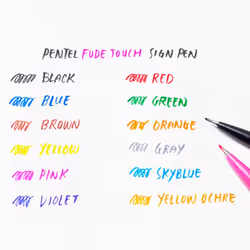 PENTEL FUDE TOUCH SIGN PEN
BLACK
BLUE
BROWN
YELLOW
PINK
VIOLET
RED
GREEN
ORANGE
GRAY
SKYBLUE
YELLOW OCHRE